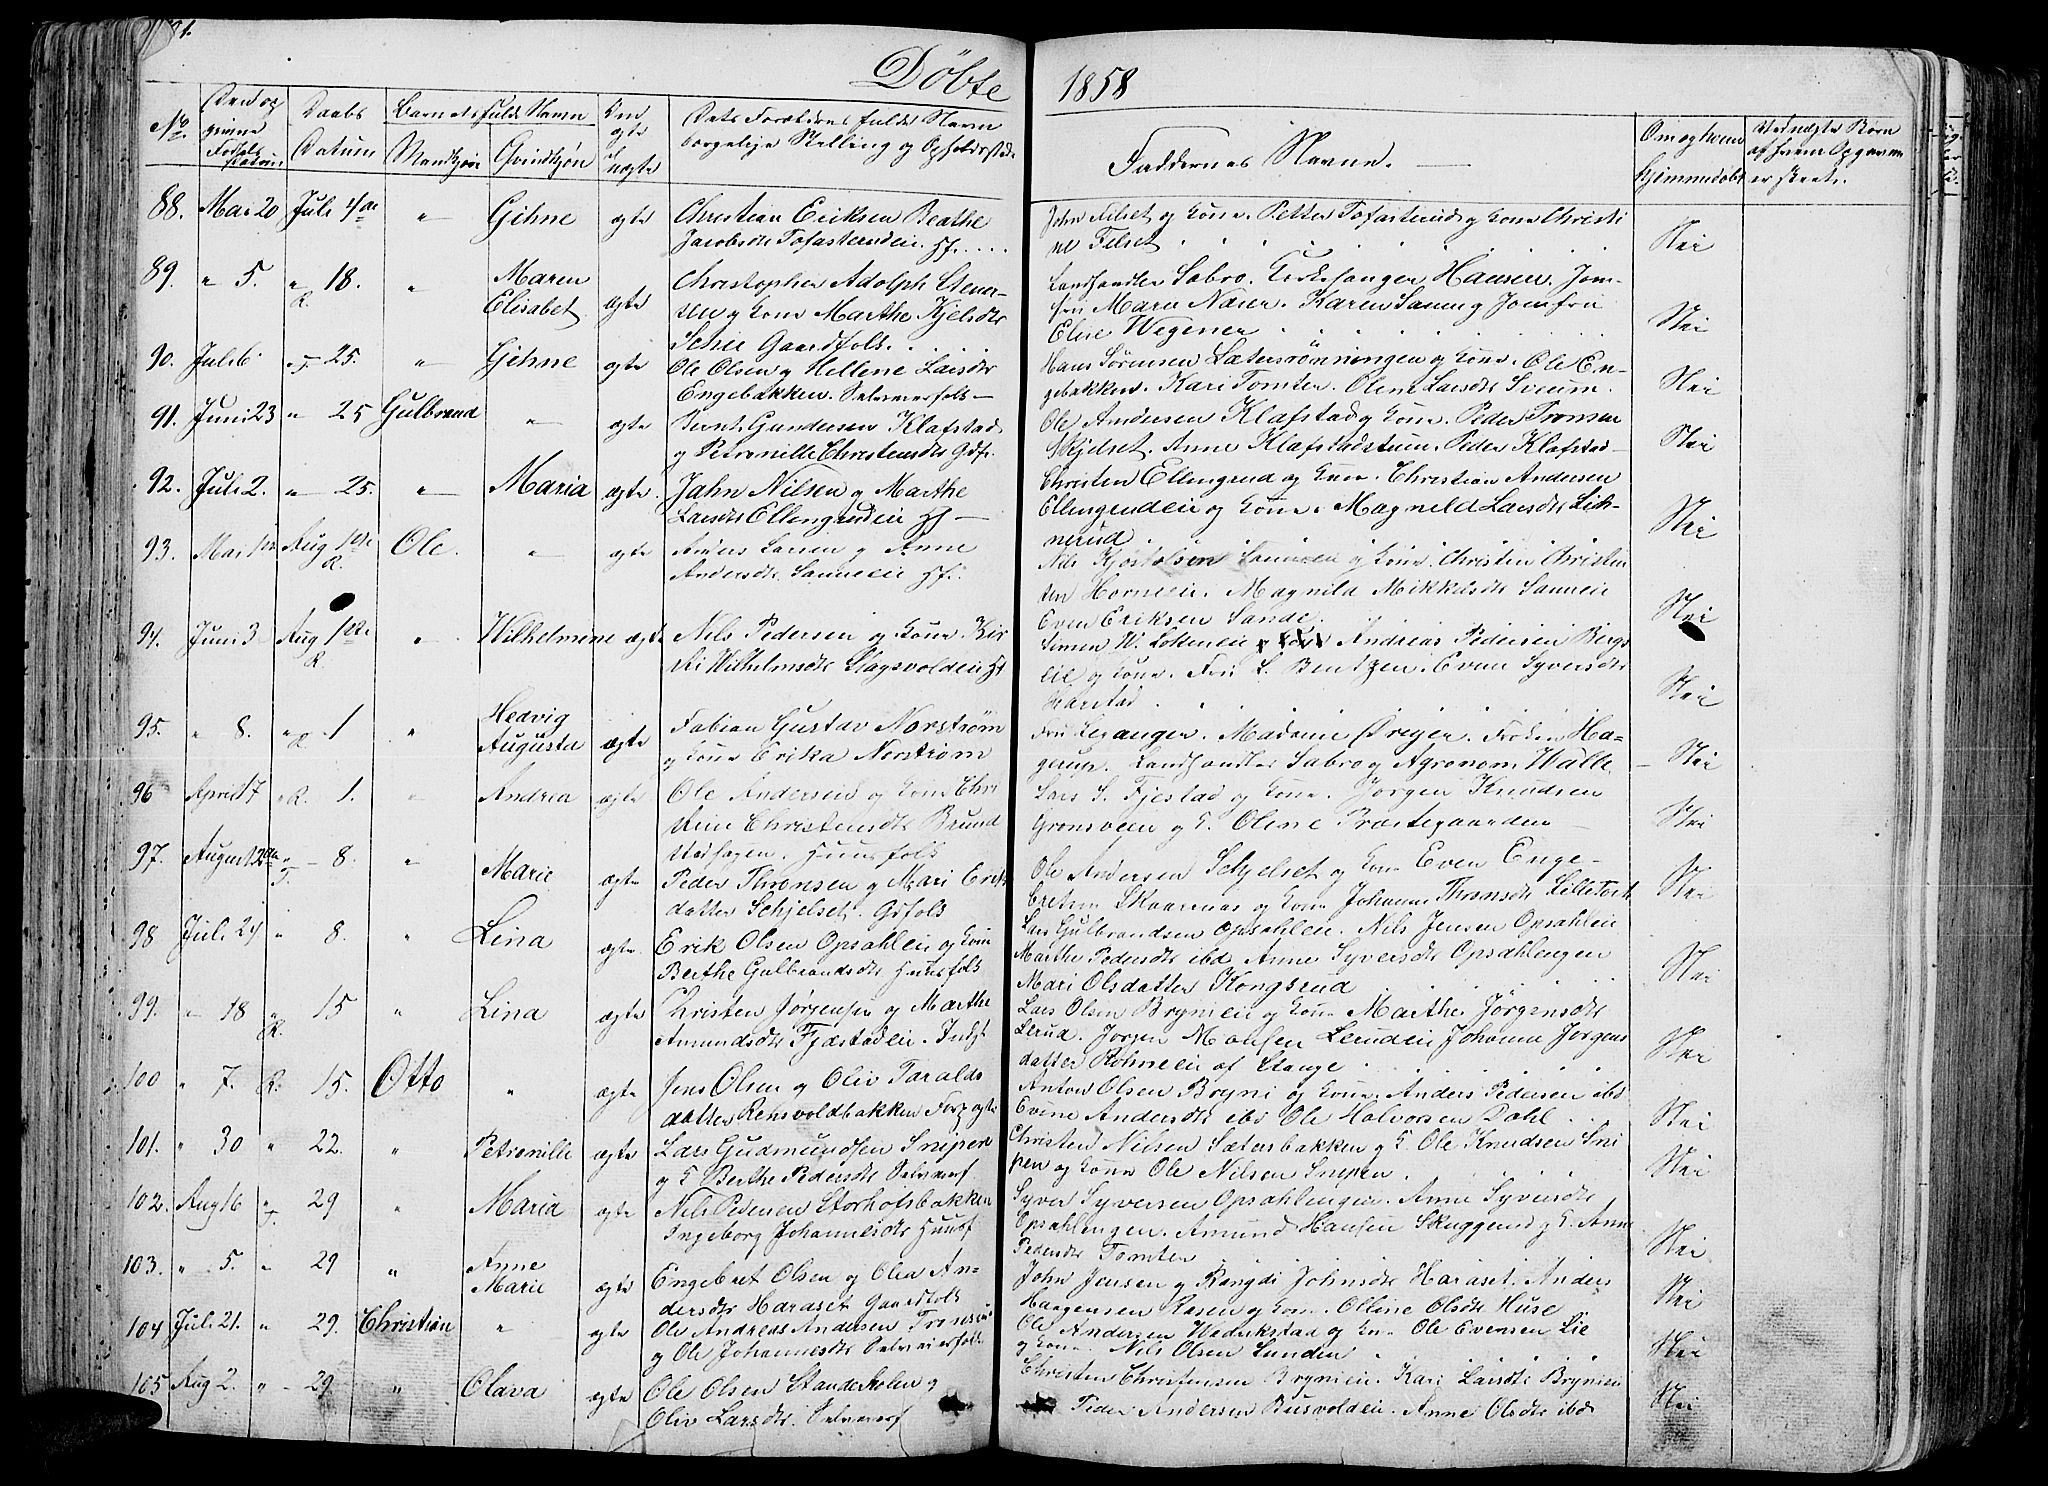 Döbte 1858
No. Daabs Datum Barnets fulde Navn Mandkjøn Qvindkjøn
Faddernes Navne.
88. Mai 20 Juli 4de " Gihne ægte Christian Eriksen Beathe
Jacobsdr Tofasterudeie. Hf.
John Filset og Kone. Petter Tofasterud og Kone Christi
ne Filset Nei
89. " 5. " 18. " Maren
Elisabet ægte Christopher Adolph Stener-
sen og Kone Marthe Kjelsdr
Schee Gaardfolk.
Landhandler Sabro. Kirkesanger Hansen. Jom-
fru Maren Næser. Karen Sanne og Jomfru
Elise Wegener Nei
90. Juli 6 " 25. " Gihne ægte Ole Olsen og Hellene Larsdr
Engebakken. Selveierfolk
Hans Sörensen Sætersrönningen og Kone. Ole En-
gebakken. Kari Tomter. Oline Larsdr Sveum. Nei
91. Juni 23 " 25 Gulbrand " ægte Bernt Gundersen Klafstad
og Petronille Christensdr Gdf.
Ole Andersen Klafstad og Kone. Peder Tronsen
Skjelset. Anne Klafstadstuen. Peder Klafstad Nei
92. Juli 2. " 25. " Maria ægte. John Nilsen og Marthe
Larsdr Ellengrudeie Hf
Christen Ellengrud og Kone. Christian Andersen
Ellengrudeie og Kone. Magnild Larsdr Lich-
nerud. Nei
93. Mai Aug 1ste R. Ole. " ægte Anders Larsen og Anne
Andersdr Sanneeie Hf.
Nils Kjöstolsen Sanneeie og Kone. Christen Christen
sen Horneeie. Magnild Mikkelsdr Sanneie
Even Eriksen Sande. Nei
94. Juni 3 Aug 1ste R. " Wilhelmine ægte Nils Pedersen og Kone Kir
sti Wilhelmsdr Slagsvoldeie Hf
Simen W. Lökeneie Andreas Pedersen Bergs
eie og Kone. Fru L. Bentzen. Even Syversdr
Harstad Nei
95. " 8. " R. 1 " Hedvig
Augusta ægte Fabian Gustav Norström
og Kone Erika Norström
Fru Leganger. Madame Dreyer. Fröken Ha-
gerup. Landhandler Sabro og Agronom Walle Nei
96 April 17 " R. 1. " Andrea ægte Ole Andersen og Kone Chri
stine Christensdr Brund
stadhagen. Huusfolk
Lars S. Fjestad og Kone. Jörgen Knudsen
Grönsveen og K. Oline Præstegaarden Nei
97. August 2den " T. 8. " Marie ægte Peder Thronsen og Mari Erik
datter Schjelset. Gdfolk
Ole Andersen Schjelset og Kone Even Enge-
bretsen Skaarenas og Kone Johanne Thronsdr Lilletork Nei
98 Juli 24 " 8. " Lina ægte. Erik Olsen Opsahleie og Kone
Berthe Gulbrandsdr Huusfolk
Lars Gulbrandsen Opsahleie. Nils Jensen Opsahleie
Marthe Pedersdr ibd Anne Syversdr Opsahlengen
Mari Olsdatter Kongsrud Nei
99. " 18 " R. 15 " Lina ægte Christen Jörgensen og Marthe
Amundsdr Fjæstadeie. Indst
Lars Olsen Bryneeie og Kone Marthe Jörgensdr
Lerud. Jörgen Monsen Lerudeie Johanne Jörgens
datter Rohneeie af Stange Nei
100 " 7. R. 15. Otto " ægte Jens Olsen og Oliv Taralds
datter Rensvoldbakken Forp ægte
Anton Olsen Bryni og Kone. Anders Pedersen ibd
Evine Andersdr ibd Ole Halvorsen Dahl Nei
101. " 30 " 22. " Petronille ægte Lars Gudmundsen Snipen
og K Berthe Pedersdr Selveierf
Christen Nilsen Sætersbakken og K. Ole Knudsen Sni
pen og Kone Ole Nilsen Snipen. Nei
102. Aug 16 " T. 29 " Maria ægte Nils Pedersen Storholsbakken
Ingeborg Johannesdr Huusf
Syver Syversen Opsahlengen. Anne Syversdr
Opsahlengen. Amund Hansen Skuggerud og K. Anne
Pedersdr Tomter Nei
103. " 5. " 29 " Anne
Marie ægte Engebret Olsen og Olea An-
dersdr Haraset Gaardfolk
John Jensen og Rangdi Johnsdr Haraset. Anders
Haagensen Rosen og Kone. Olline Olsdr Huse Nei
104 Juli 21. " 29. Christian " ægte Ole Andreas Andersen Tronsrud
og Ole Johannesdr Selveierfolk
Ole Andersen Wedickstad og Kone Ole Evensen Lie
og Kone. Nils Olsen Lunden Nei
105 Aug 2. " 29 " Olava ægte Ole Olsen Standerholen og
Oliv Larsdr. Selveierf
Christen Christensen Bryneeie. Kari Larsdr Bryneeie
Peder Andersen Busvoldeie. Anne Olsdr ibd Nei